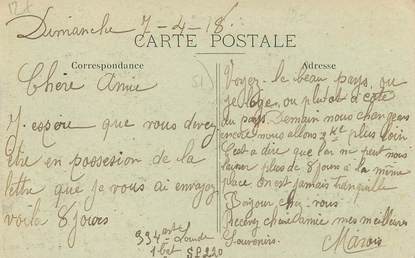 Dimanche 7-4-18.
CARTE POSTALE
Correspondance
Chère Amie
J'espère que vous devez
être en possesion de la
lettre que je vous ai envoyé
voila 8 jours
334 artie Lourde
1 bat SP 220
Adresse
Voyez-le beau pays, ou
je loge, ou plutot a coté
du pays. Demain nous changeons
encore nous allons plus loin
C'est a dire que l'on ne peut nous
laisser plus de 8 jours à la même
place on est jamais tranquille
Bonjour chez vous
Recevez chère amie mes meilleurs
Souvenirs.